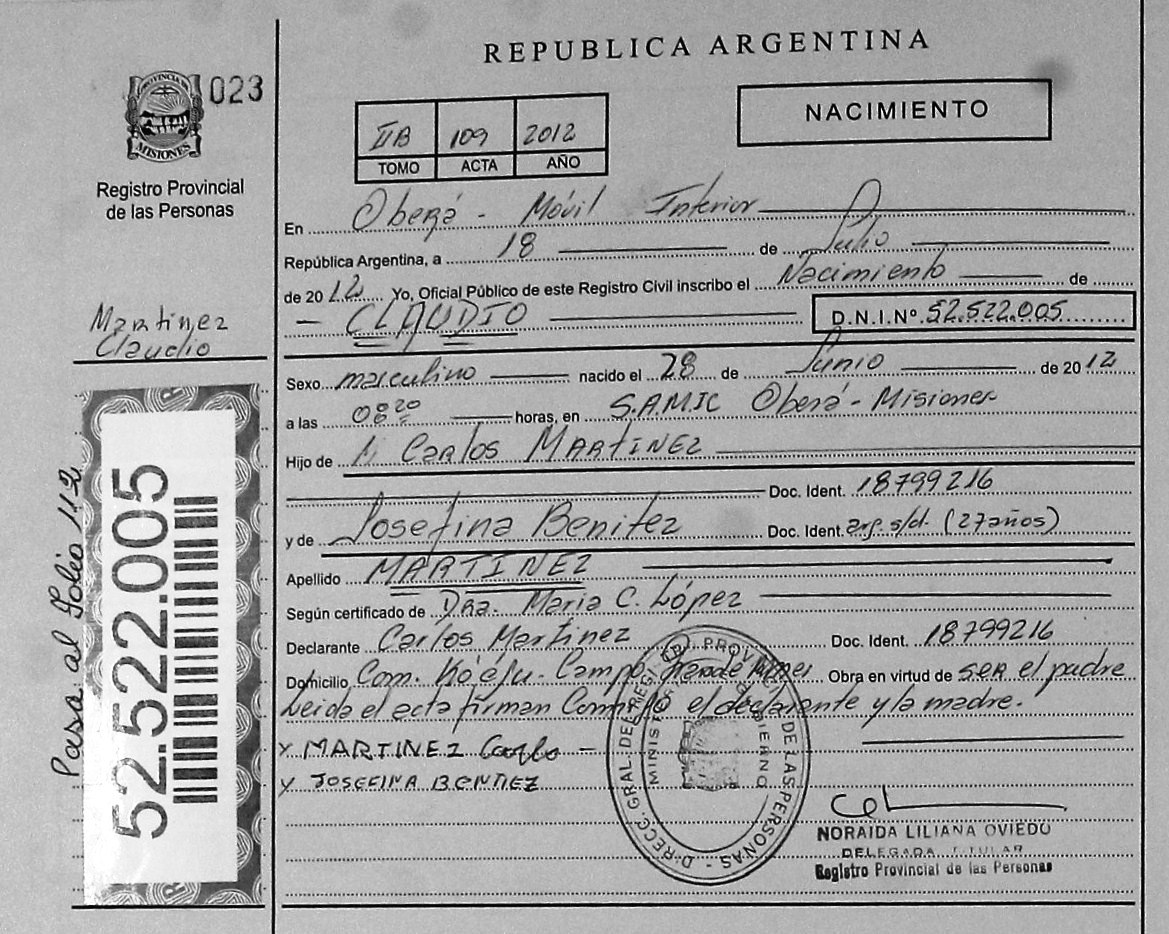 REPUBLICA ARGENTINA
023
PROVINCIA DE
MISIONES
Registro Provincial
de las Personas
IIB 109 2012
TOMO ACTA AÑO
NACIMIENTO
En Oberá - Móvil Interior
República Argentina, a 18 de Julio
de 2012 Yo, Oficial Público de este Registro Civil inscribo el Nacimiento de
CLAUDIO D.N.I.Nº 52.522.005
Martinez
Claudio
Sexo masculino nacido el 28 de Junio de 2012
a las 08 20 horas, en S.A.M.I.C Oberá - Misiones
Hijo de Carlos MARTINEZ
Doc. Ident. 18799216
y de Josefina Benitez Doc. Ident. arg. s/d. (27 años)
Apellido MARTINEZ
Según certificado de Dra. Maria C. López
Declarante Carlos Martinez Doc. Ident. 18799216
Domicilio Com. Ko'ẽju - Campo Obra en virtud de SER el padre
Leida el acta firman Conmigo el declarante y la madre.
x MARTINEZ Carlo
x JOSEFINA BENTIEZ
Pasa al Folio 112
52.522.005
DIRECC. GRAL. DEL REGISTRO PROVINCIAL DE LAS PERSONAS
MINISTERIO DE GOBIERNO
NORAIDA LILIANA OVIEDO
DELEGADA TITULAR
Registro Provincial de las Personas